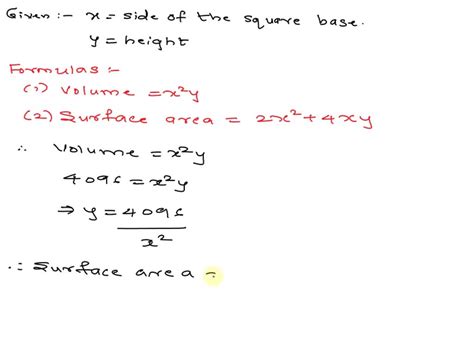 Given :- x = side of the square base.
y = height
Formulas :-
(1) Volume = x²y
(2) Surface area = 2x² + 4xy
∴ Volume = x²y
4096 = x²y
⇒ y = 4096
x²
∴ Surface area =